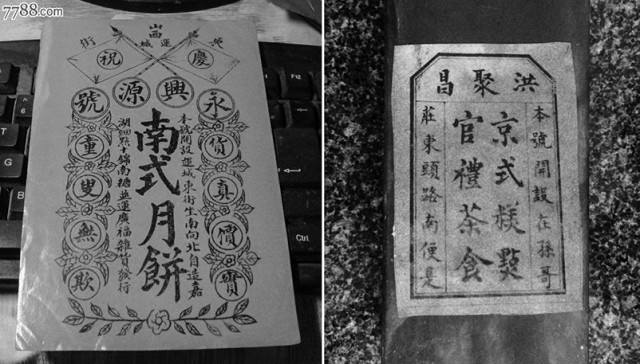 7788.com
山西
運城
東街
慶祝
永興源號
貨真價實
本號開設運城東街坐南向北自造嘉
南式月餅
湖細點錦南糖並運廣福雜貨發行
童叟無欺
洪聚昌
本號開設在孫哥
京式糕點
官禮茶食
莊東頭路南便是